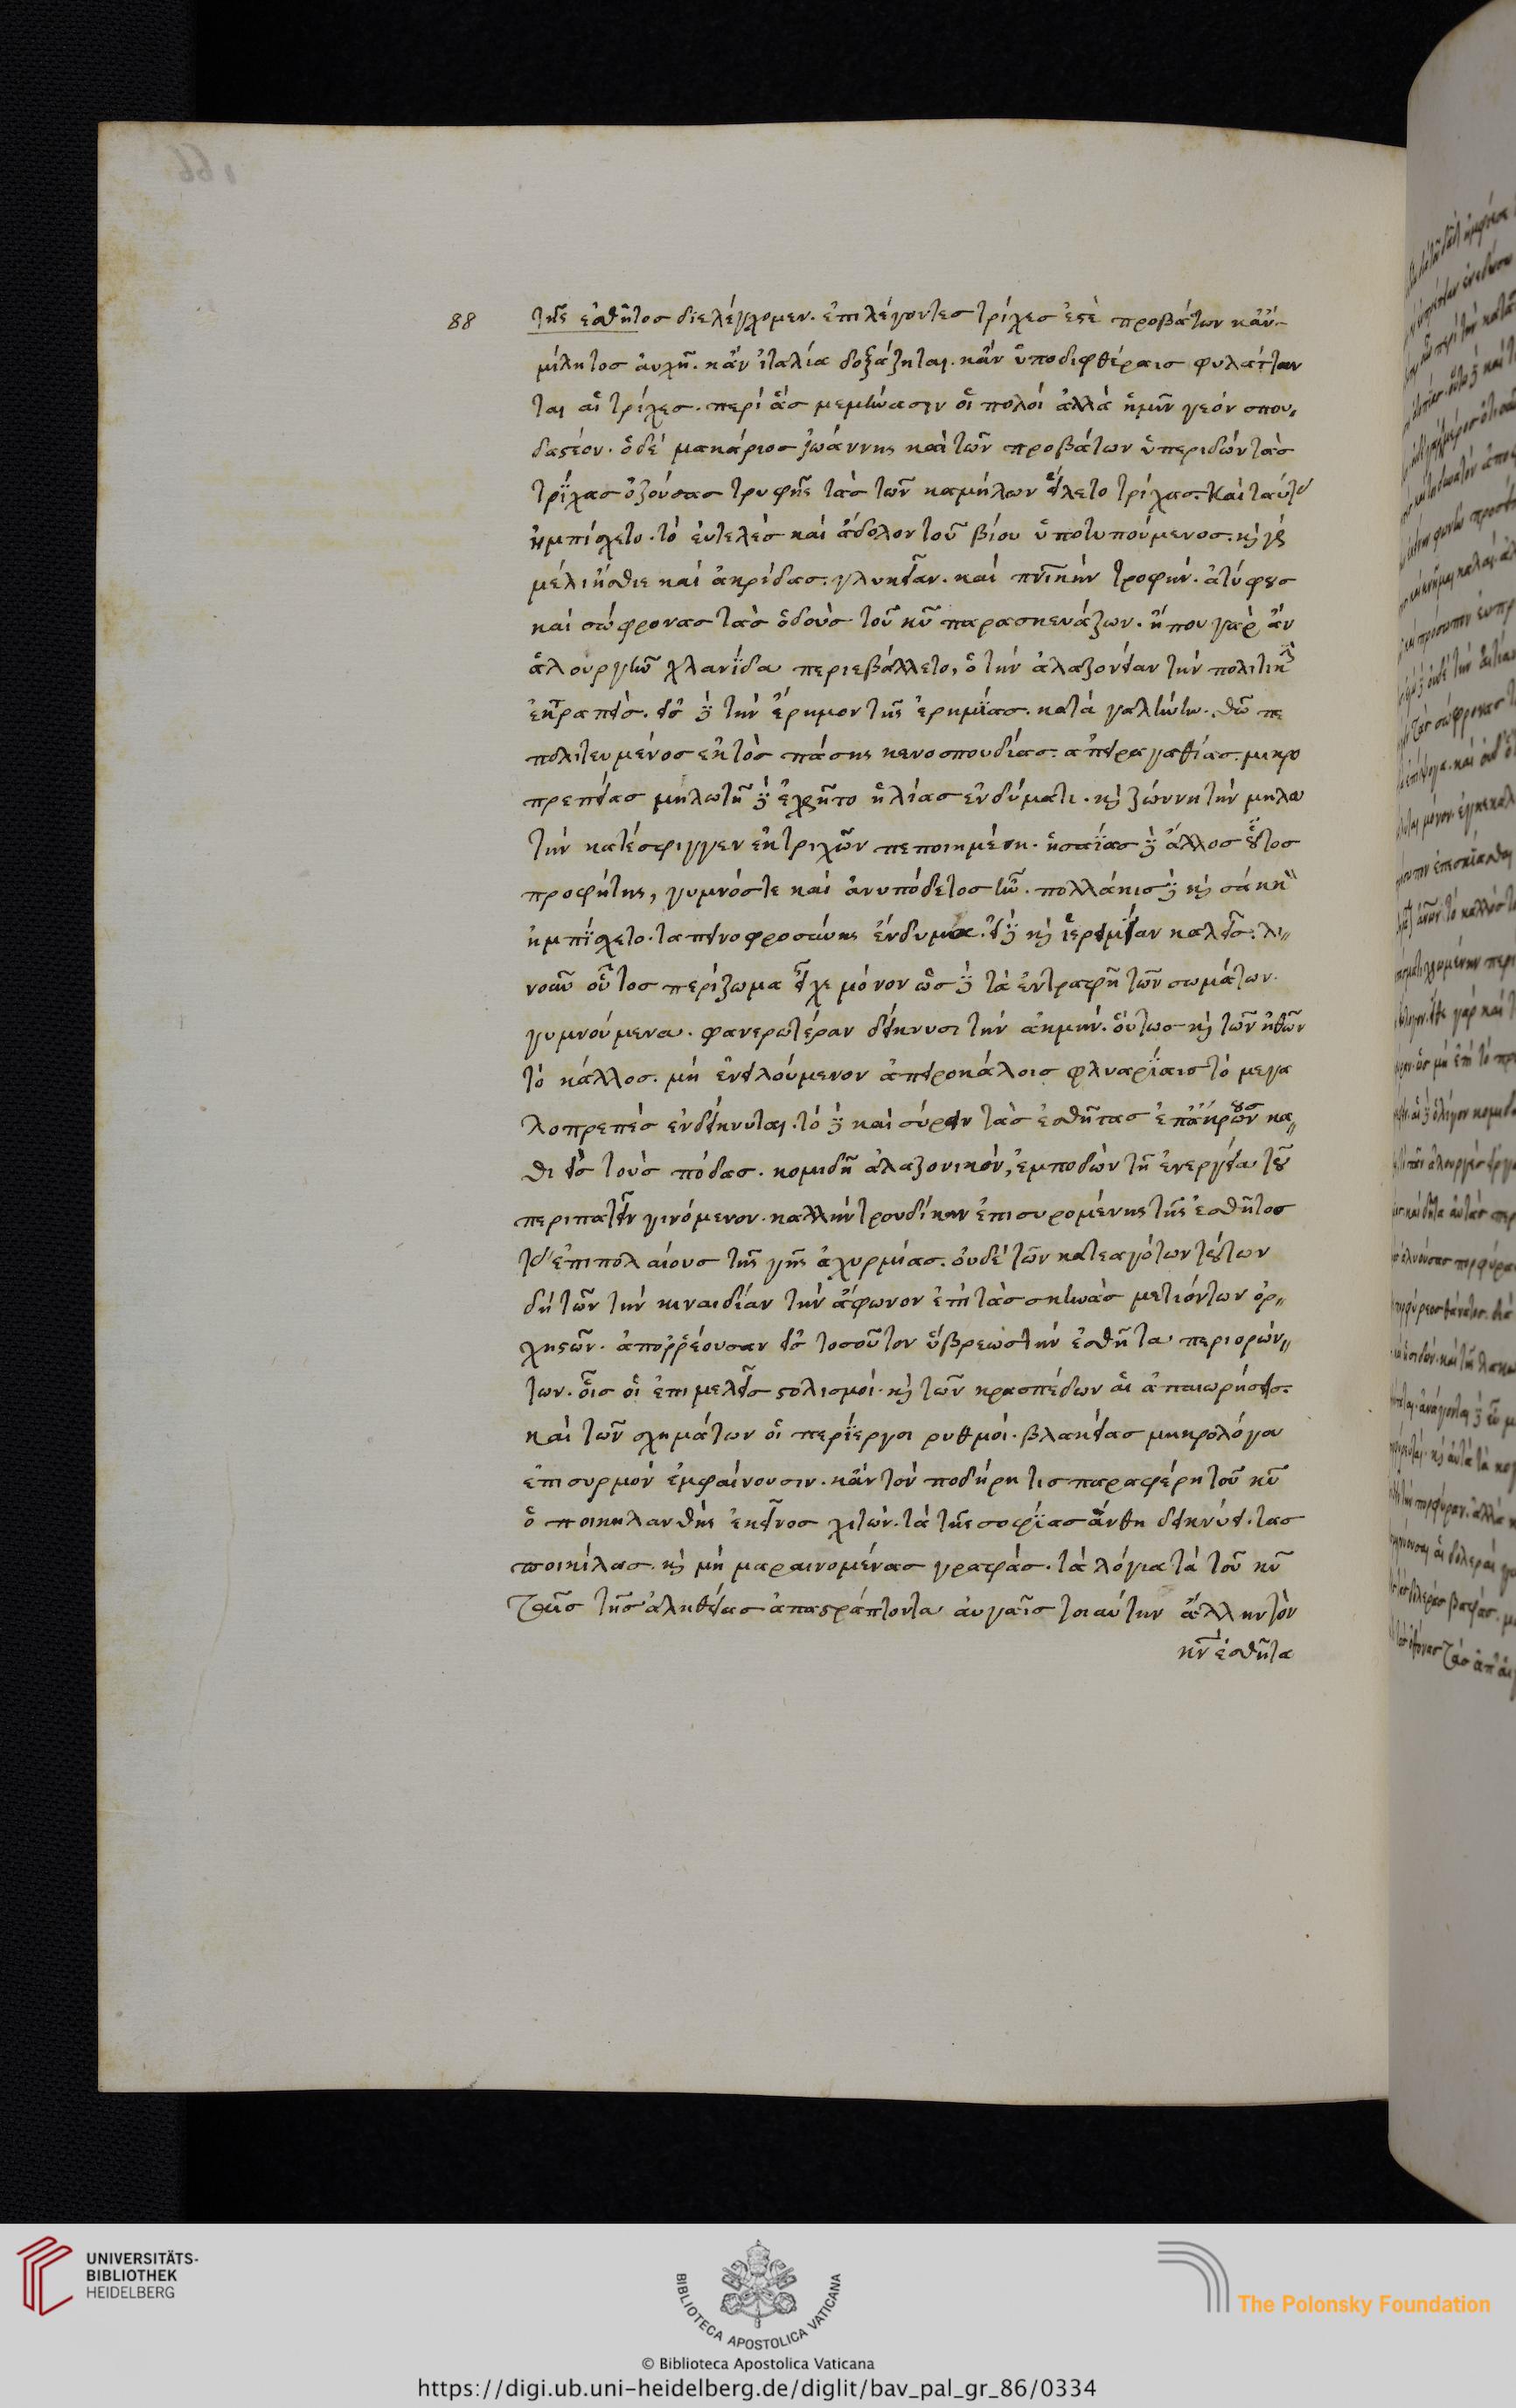 88 τῆς ἐσθῆτος διελέγχομεν. ἐπιλέγοντες τρίχες ἐστὲ προβάτων κἂν
μίλητος ἀυχῆ. κἂν ἰταλία δοξάζηται. κἂν ὑποδιφθέραις φυλάττων
ται αἱ τρίχες. περὶ ἃς μεμήνασιν οἱ πολοί ἀλλὰ ἡμῖν γεόν σπου
δαστέον. ὁδὲ μακάριος ἰωάννης καὶ τῶν προβάτων ὑπεριδών τὰς
τρίχας ὀζούσας τρυφῆς τὰς τῶν καμήλων εἵλετο τρίχας. Καὶ ταύτας
ἠμπίσχετο. τὸ ἐυτελές καὶ ἄδολον τοῦ βίου ὑποτυπούμενος. κὶ γὰρ
μέλι ἤσθιε καὶ ἀκρίδας. γλυκεῖαν. καὶ πνϊκήν τροφήν. ἀτύφους
καὶ σώφρονας τὰς ὁδούς τοῦ κυ παρασκευάζων. ἤπου γὰρ ἂν
ἁλουργῆ χλανίδα περιεβάλλετο, ὁ τὴν ἀλαζονείαν τὴν πολιτικὴν
ἐκτραπείς. εἰς δὲ τὴν ἔρημον τῆς ἐρημίας. κατὰ γαλήνην. θῶ πε
πολιτευμένος ἐκτὸς πάσης κενοσπουδίας. ἀπειραγαθίας. μικρο
πρεπείας μηλωτῆ δὲ ἐχρῆτο ἡλίας ἐνδύματι. κὶ ζώννη τὴν μηλω
τὴν κατέσφιγγεν ἐκ τριχῶν πεποιημένη. ἡσαΐας δὲ ἄλλος οὗτος
προφήτης, γυμνός τε καὶ ἀνυπόδετος ἦν. πολλάκις δὲ κὶ σάκκον
ἠμπίσχετο. ταπεινοφροσύνης ἔνδυμα. εἰ δὲ κὶ ἱερεμίαν καλεῖς. λι
νοῦν οὗτος περίζωμα εἶχε μόνον ὡς δὲ τὰ ἐντραφῆ τῶν σωμάτων
γυμνούμενα. φανερωτέραν δείκνυσι τὴν ἀκμήν. ὅυτως κὶ τῶν ἠθῶν
τὸ κάλλος. μὴ ἐνειλούμενον ἀπειροκάλοις φλυαρίαις τὸ μεγα
λοπρεπὲς ἐνδείκνυται. τὸ δὲ καὶ σύρειν τὰς ἐσθῆτας ἐπάκρους κα
θιεὶς τοὺς πόδας. κομιδῆ ἀλαζονικόν, ἐμποδών τῆ ἐνεργεία τοῦ
περιπατεῖν γινόμενον. καλλήντρου δίκην ἐπισυρομένης τῆς ἐσθῆτος
τοὺς ἐπιπολαίους τῆς γῆς ἀχυρμίας. ὀυδὲ τῶν κατεαγότων τούτων
δὴ τῶν τὴν κιναιδίαν τὴν ἄφωνον ἐπὶ τὰς σκηνὰς μετιόντων ὀρ
χηστῶν. ἀπορρέουσαν εἰς τοσοῦτον ὕβρεως τὴν ἐσθῆτα περιορών
των. οἷς οἱ ἐπιμελεῖς στολισμοί. κὶ τῶν κρασπέδων αἱ ἀπαιωρήσεις.
καὶ τῶν σχημάτων οἱ περίεργοι ρυθμοί. βλακείας μικρολόγου
ἐπισυρμὸν ἐμφαίνουσιν. κἂν τὸν ποδήρη τις παραφέρη τοῦ κυ
ὁ ποικιλανθής ἐκεῖνος χιτών. τὰ τῆς σοφίας ἄνθη δεικνύει. τὰς
ποικίλας. κὶ μὴ μαραινομένας γραφάς. τὰ λόγια τὰ τοῦ κυ
ταῖς τῆς ἀληθείας ἀπαστράπτοντα ἀυγαῖς τοιαύτην ἄλλην τὸν
κν ἐσθῆτα
166
UNIVERSITÄTS-
BIBLIOTHEK
HEIDELBERG
BIBLIOTECA APOSTOLICA VATICANA
The Polonsky Foundation
© Biblioteca Apostolica Vaticana
https://digi.ub.uni-heidelberg.de/diglit/bav_pal_gr_86/0334